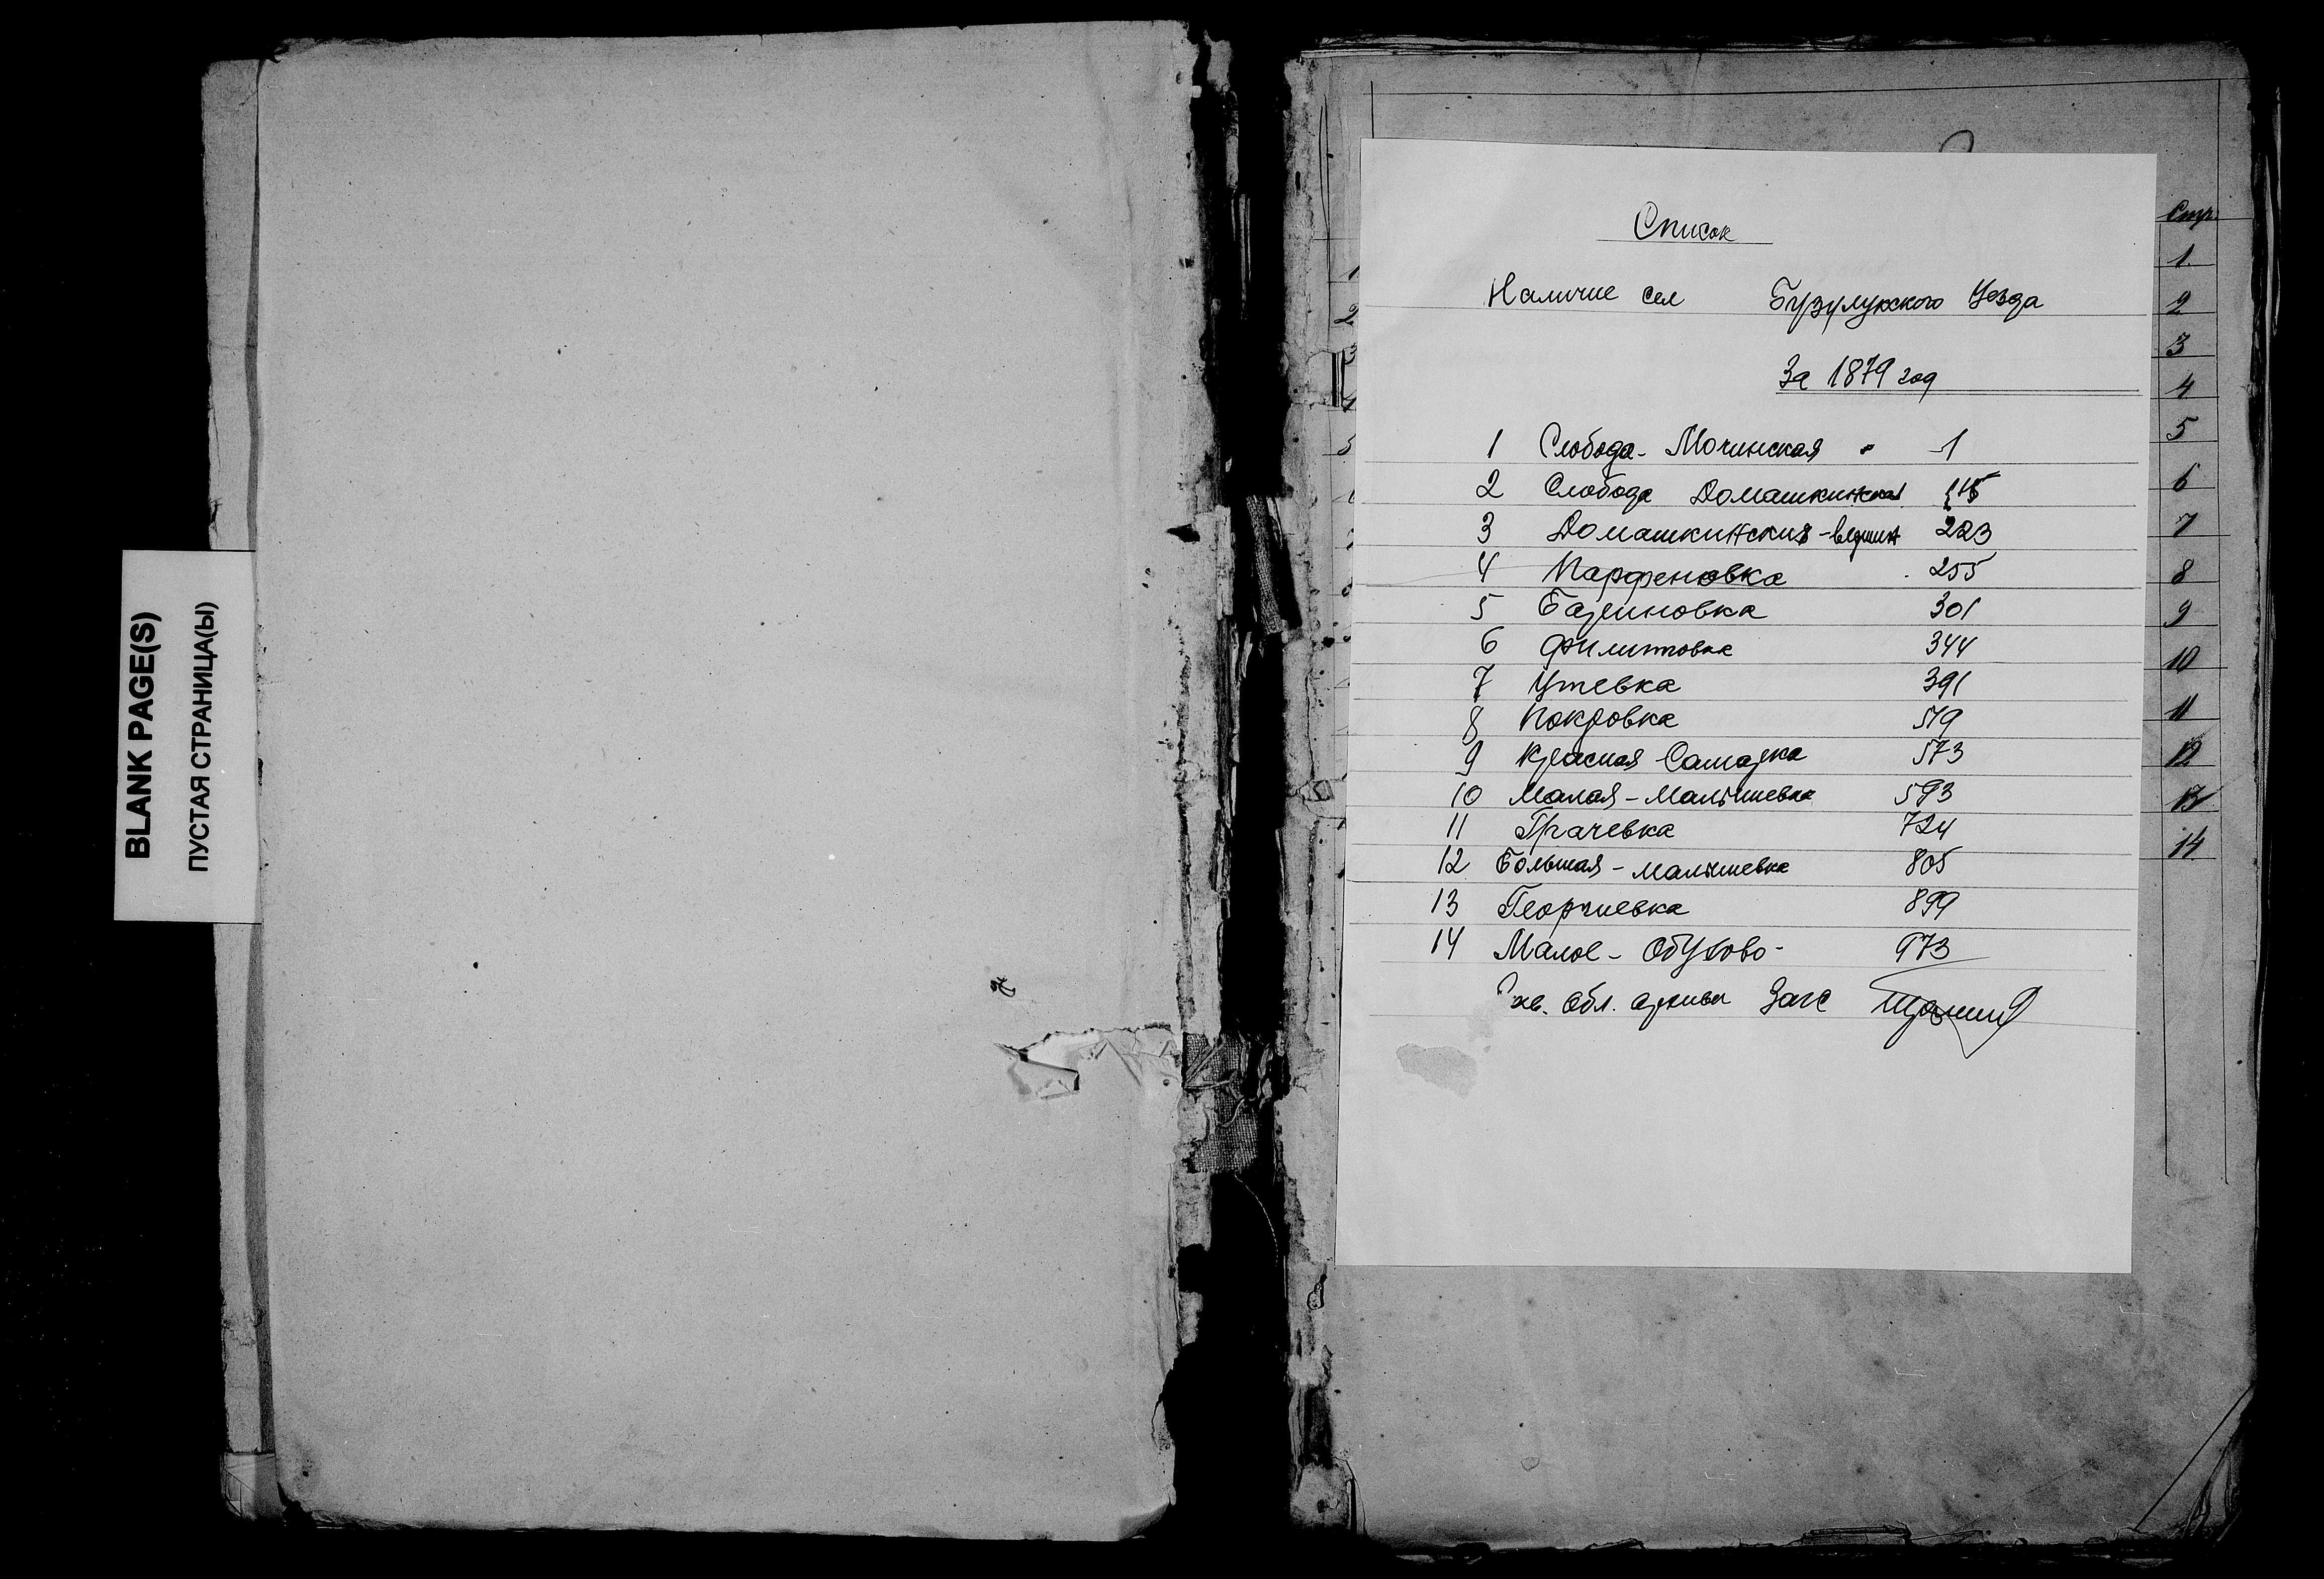 BLANK PAGE(S)
ПУСТАЯ СТРАНИЦА(Ы)
Список
Наличие сел Бузулукского Уезда
За 1879 год
1 Слобода - Мочинская - 1
2 Слобода Домашкинская 115
3 Домашкинския - вершин 223
4 Парфеновка 255
5 Бариновка 301
6 Филипповка 344
7 Утевка 391
8 Покровка 519
9 Красная Самарка 573
10 Малая - Малышевка 593
11 Грачевка 724
12 Большая - малышевка 805
13 Георгиевка 899
14 Малое - Обухово - 973
Зав. Обл. архива Загс
Стр.
1
2
3
4
5
6
7
8
9
10
11
12
13
14